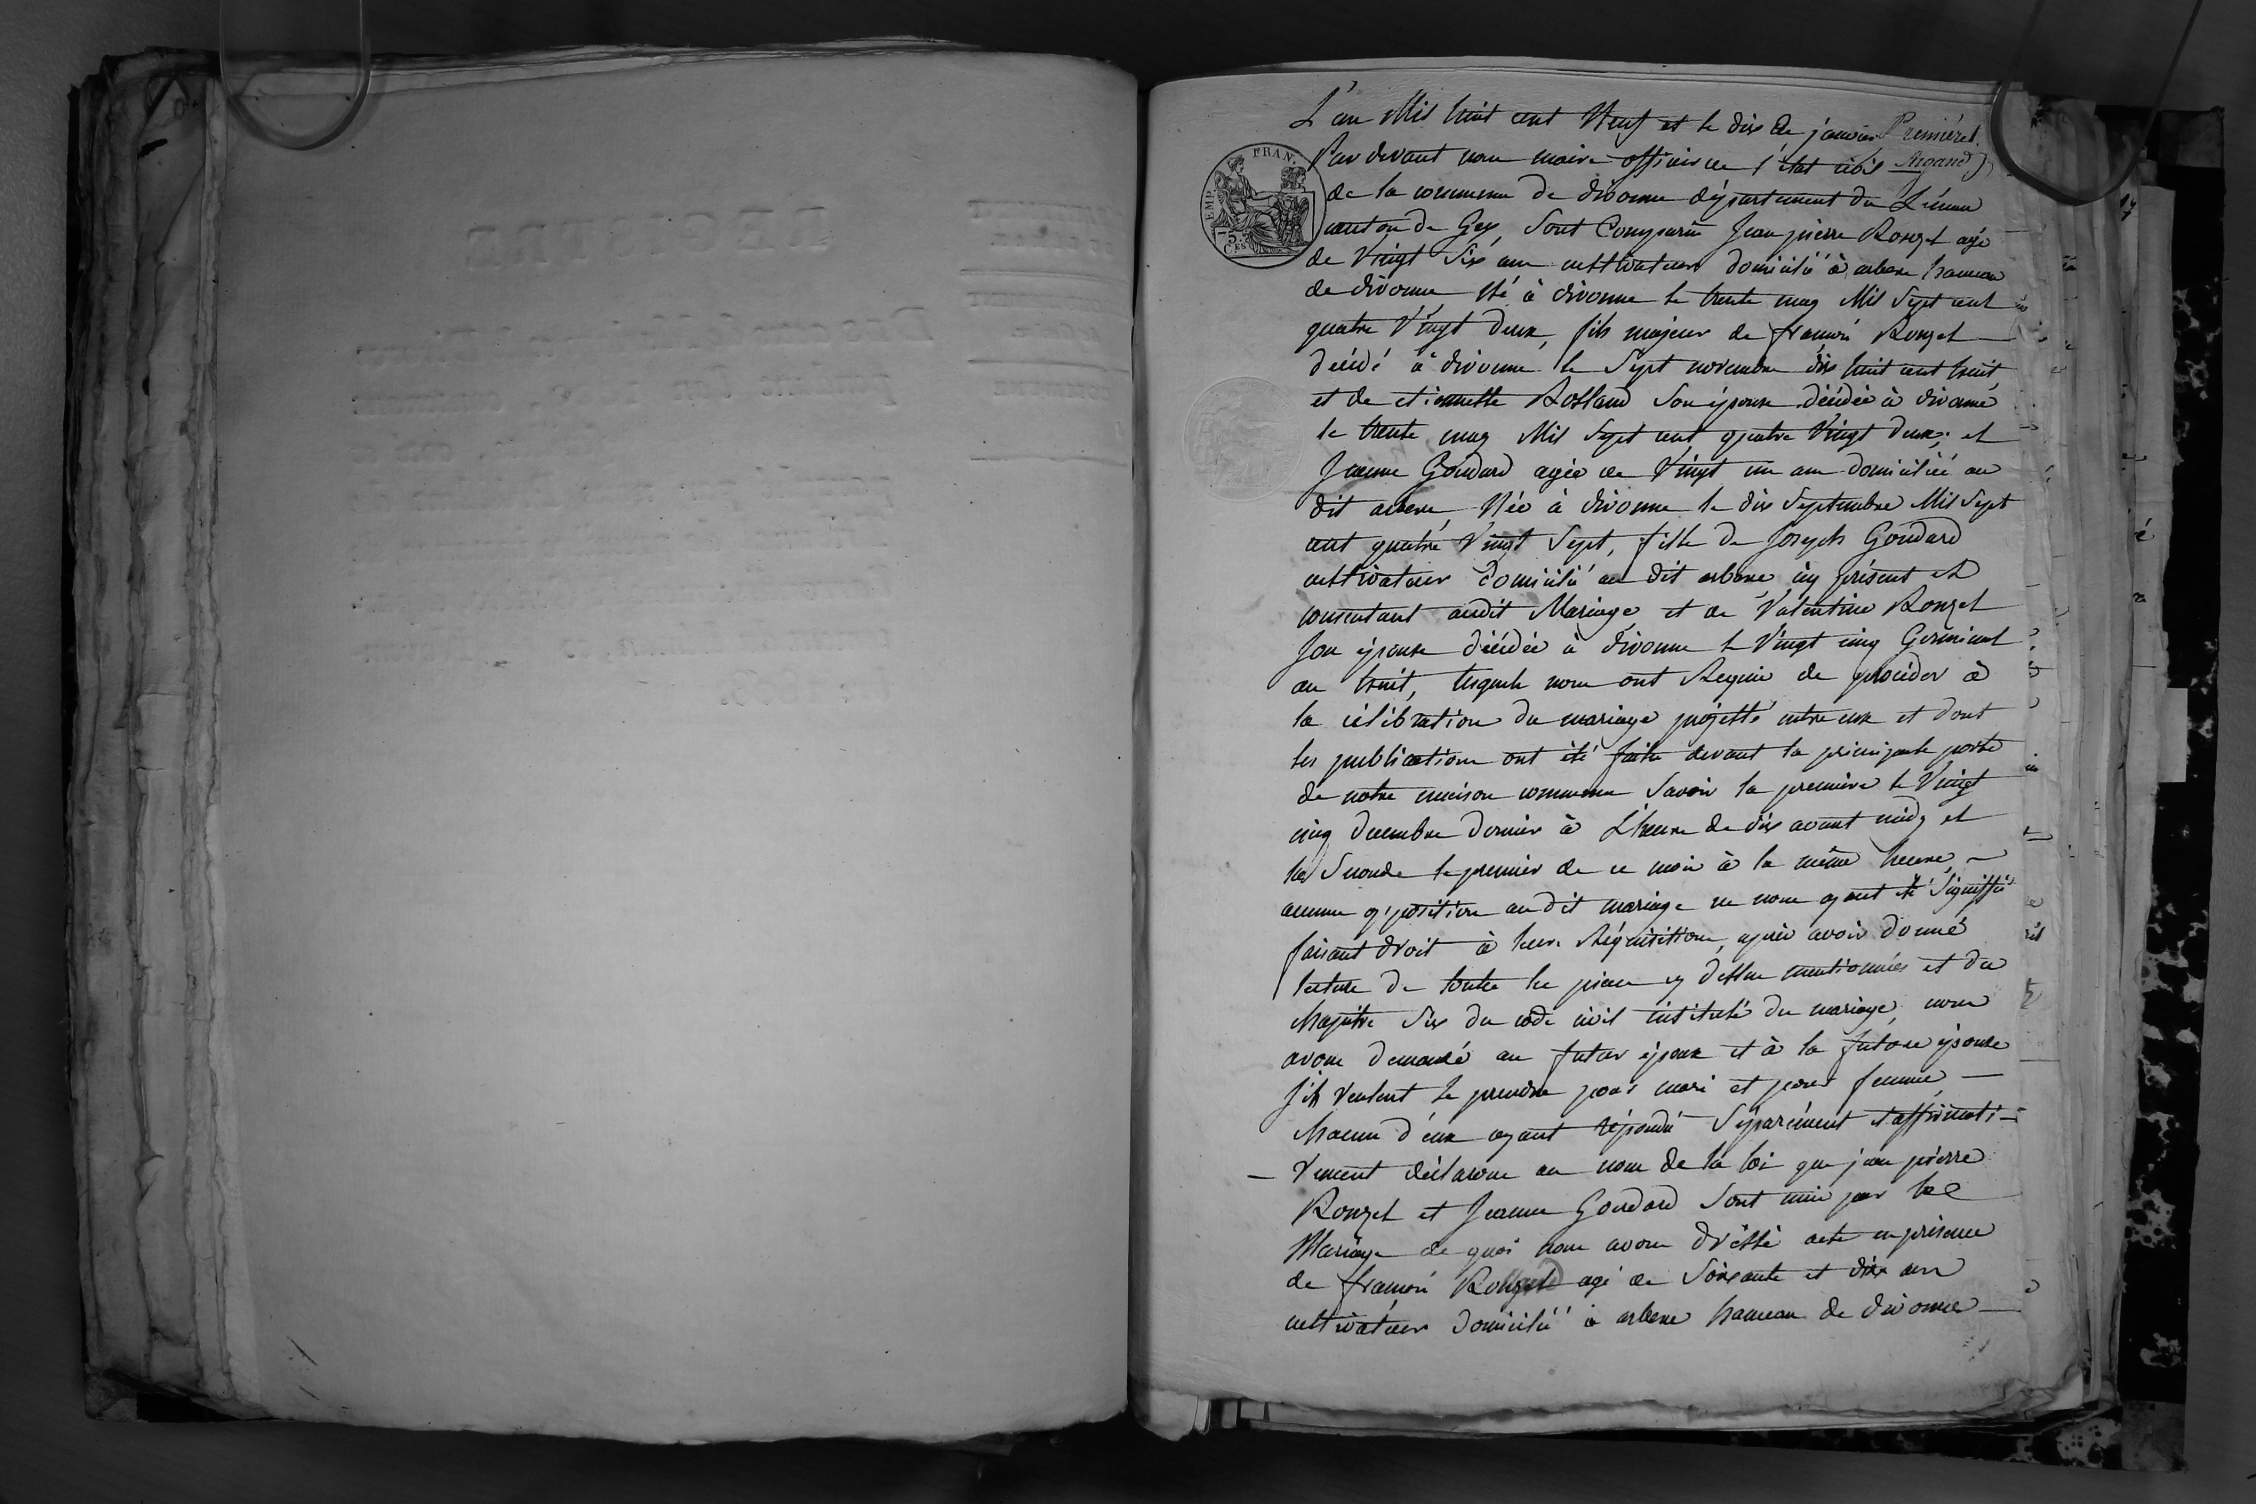 L'an Mil huit cent Neuf et le dix De janvier Premier f.
Par devant nous maire officier de l'état civil Argand
de la commune de divonne département du Léman
canton de Gex, Sont Comparus Jean pierre Rouzet agé
de Vingt Six ans cultivateur domicilié à arbere hameau
de divonne Né à divonne le trente may Mil Sept cent
quatre Vingt Deux, fils majeur de françois Rouzet
décédé à divonne le Sept novembre dix huit cent huit
et de etiennette Rolland Son épouse décédée à divonne
le trente may Mil Sept cent quatre Vingt Deux; et
Jeanne Goudard agée de Vingt un ans domiciliée au
dit arbere, Née à divonne le dix Septembre Mil Sept
cent quatre Vingt Sept, fille de Joseph Goudard
cultivateur Domicilié au dit arbere icy présent et
consentant audit Mariage et de Valentine Rouzet
Son épouse décédée à divonne le Vingt cinq Germinal
an huit, lesquels nous ont Requis de procéder à
la célébration du mariage projetté entre eux et dont
les publications ont été faites devant la principale porte
de notre maison commune Savoir la première le Vingt
cinq decembre dernier à L'heure de dix avant midy et
la Seconde le premier de ce mois à la même heure,
aucune opposition audit mariage ne nous ayant été Signiffiée
faisant droit à leur Réquisition, après avoir donné
lecture de toutes les pieces cy dessus mentionnées et du
chapitre Six du code civil intitulé du mariage, nous
avons demandé au futur époux et à la future épouse
S'ils veulent Se prendre pour mari et pour femme —
chacun d'eux ayant répondu Séparément et affirmati-
- vement déclarons au nom de la loi que jean pierre
Rouzet et Jeanne Goudard Sont unis par le
Mariage de quoi nous avons dréssé acte en présence
de françois Rouzet agé de Soixante et dix ans
cultivateur Domicilié à arbere hameau de divonne —
EMP. FRAN.
75 CES